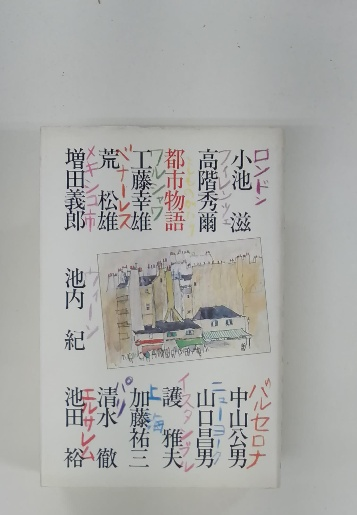 ロンドン
小池 滋
フィレンツェ
高階秀爾
都市物語
ワルシャワ
工藤幸雄
ベナーレス
荒 松雄
メキシコ市
増田義郎
ウィーン
池内 紀
バルセロナ
中山公男
ニューヨーク
山口昌男
イスタンブル
護 雅夫
上海
加藤祐三
パリ
清水 徹
エルサレム
池田 裕